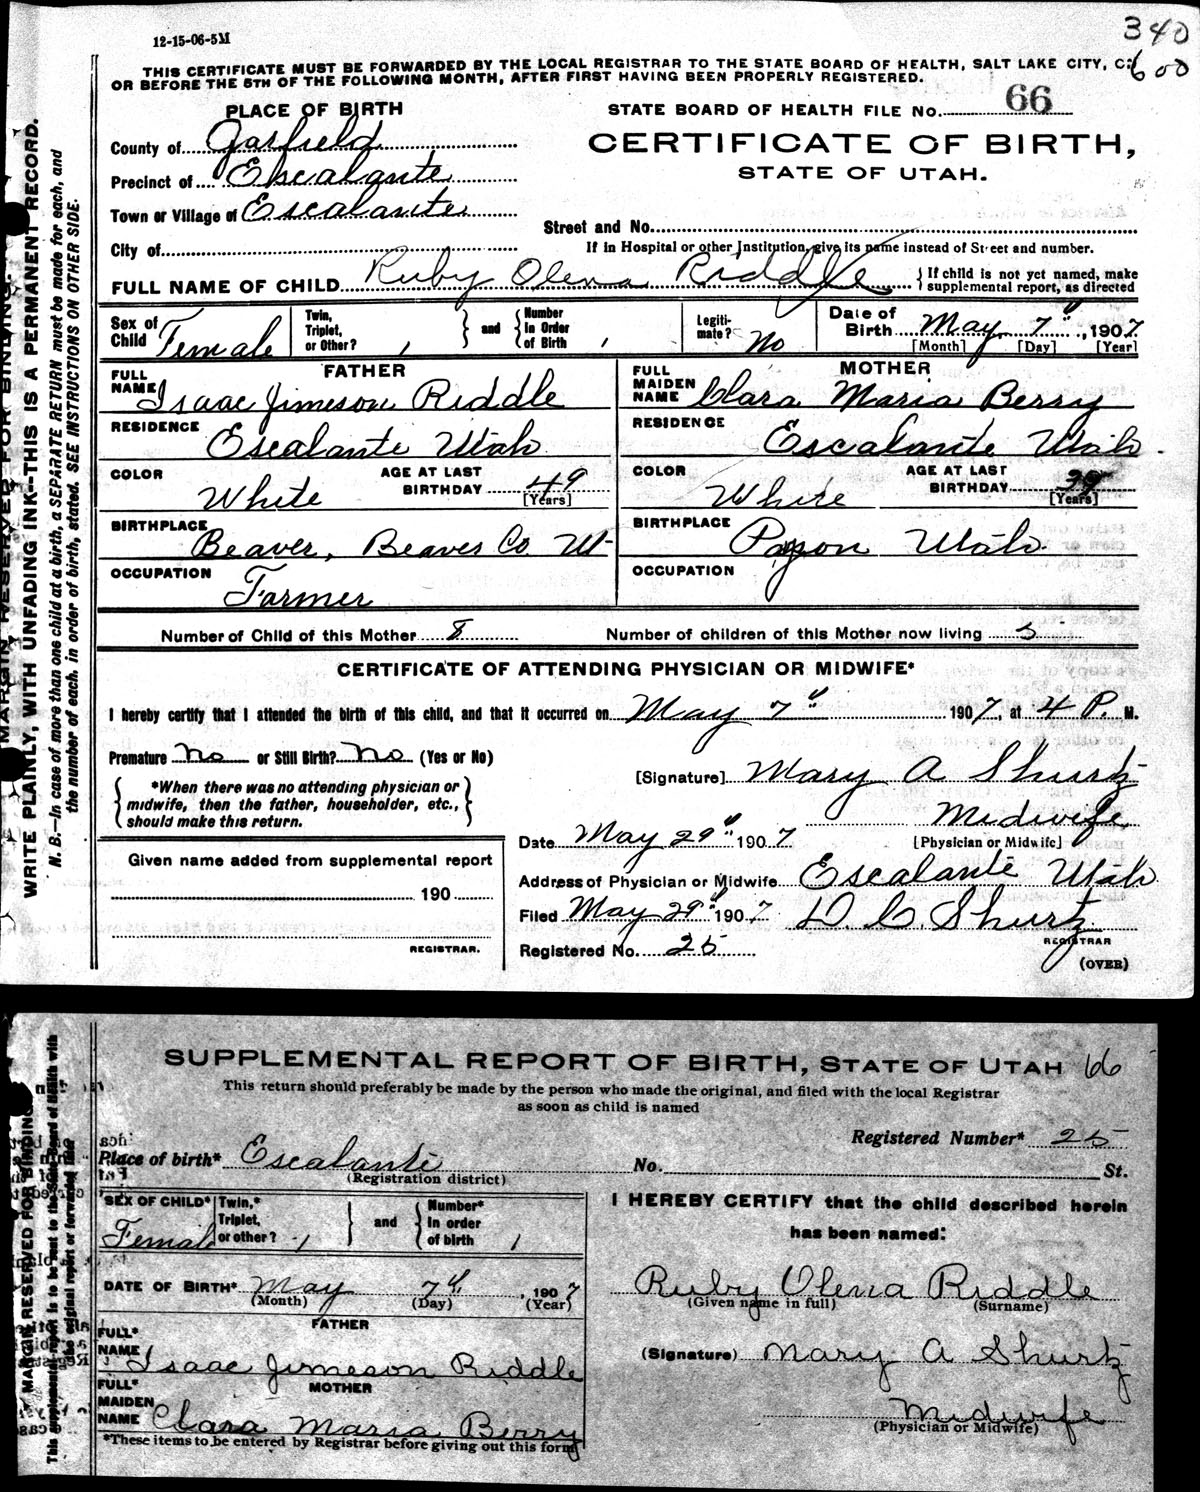 12-15-06-5M
340
600
THIS CERTIFICATE MUST BE FORWARDED BY THE LOCAL REGISTRAR TO THE STATE BOARD OF HEALTH, SALT LAKE CITY,
OR BEFORE THE 5TH OF THE FOLLOWING MONTH, AFTER FIRST HAVING BEEN PROPERLY REGISTERED.
PLACE OF BIRTH
STATE BOARD OF HEALTH FILE No. 66
County of Garfield
CERTIFICATE OF BIRTH,
Precinct of Escalante
STATE OF UTAH.
Town or Village of Escalante
Street and No.
City of
If in Hospital or other Institution, give its name instead of Street and number.
FULL NAME OF CHILD Ruby Olena Riddle
{If child is not yet named, make supplemental report, as directed
Sex of Child Female
Twin, Triplet, or Other? 1 } and { Number in Order of Birth 1
Legitimate? No
Date of Birth May 7", 1907
[Month] [Day] [Year]
FATHER
FULL NAME Isaac Jimeson Riddle
MOTHER
FULL MAIDEN NAME Clara Maria Berry
RESIDENCE Escalante Utah
RESIDENCE Escalante Utah
COLOR White AGE AT LAST BIRTHDAY 49 [Years]
COLOR White AGE AT LAST BIRTHDAY 39 [Years]
BIRTHPLACE Beaver, Beaver Co Ut-
BIRTHPLACE Payson Utah.
OCCUPATION Farmer
OCCUPATION
Number of Child of this Mother 8
Number of children of this Mother now living 5
CERTIFICATE OF ATTENDING PHYSICIAN OR MIDWIFE*
I hereby certify that I attended the birth of this child, and that it occurred on May 7" 1907, at 4 P. M.
Premature No or Still Birth? No (Yes or No)
{ *When there was no attending physician or midwife, then the father, householder, etc., should make this return. }
[Signature] Mary A Shurtz
Midwife
[Physician or Midwife]
Date May 29" 1907
Address of Physician or Midwife Escalante Utah
Filed May 29" 1907 D. C. Shurtz
REGISTRAR
Registered No. 25
(OVER)
Given name added from supplemental report
190
REGISTRAR.
MARGIN RESERVED FOR BINDING.
WRITE PLAINLY, WITH UNFADING INK--THIS IS A PERMANENT RECORD.
N. B.—In case of more than one child at a birth, a SEPARATE RETURN must be made for each, and
the number of each, in order of birth, stated. SEE INSTRUCTIONS ON OTHER SIDE.
SUPPLEMENTAL REPORT OF BIRTH, STATE OF UTAH 66
This return should preferably be made by the person who made the original, and filed with the local Registrar
as soon as child is named
Registered Number* 25
Place of birth* Escalante No. St.
(Registration district)
SEX OF CHILD* Female
Twin,* Triplet, or other? 1 } and { Number* in order of birth 1
I HEREBY CERTIFY that the child described herein
has been named:
DATE OF BIRTH* May 7th, 1907
(Month) (Day) (Year)
Ruby Olena Riddle
(Given name in full) (Surname)
FATHER
FULL* NAME Isaac Jimeson Riddle
(Signature) Mary A Shurtz
MOTHER
FULL* MAIDEN NAME Clara Maria Berry
Midwife
(Physician or Midwife)
*These items to be entered by Registrar before giving out this form
MARGIN RESERVED FOR BINDING